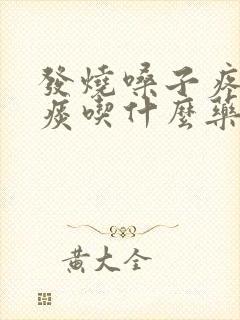 發燒嗓子疼
痰喫什麼藥
黃大全